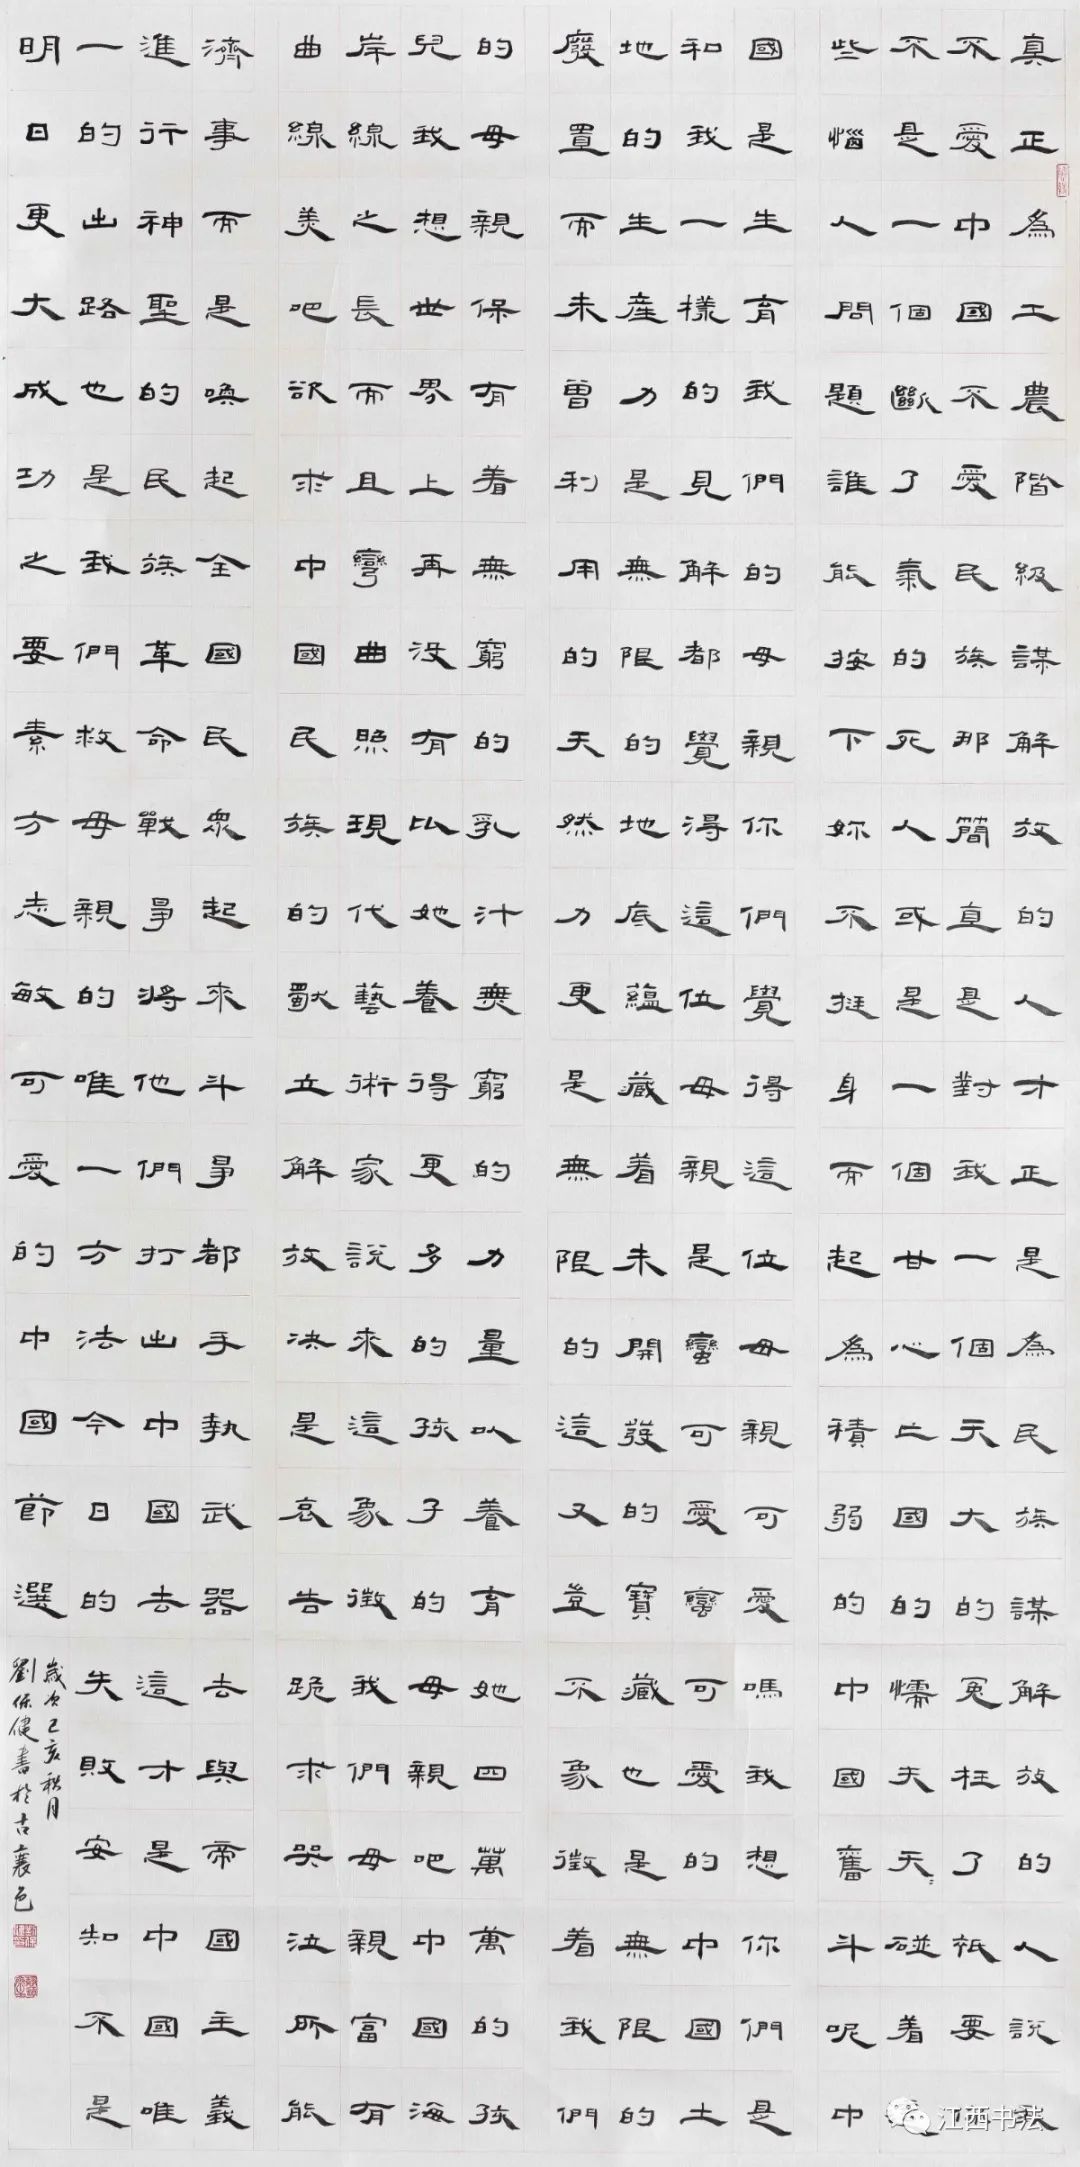 真正為工農階級謀解放的人才正是為民族謀解放的人說我
不愛中國不愛民族那簡直是對我一個天大的冤枉了祇要
不是一個斷了氣的死人或是一個甘心亡國的懦夫天碰着
些惱人問題誰能按下妳不挺身而起為積弱的中國奮斗呢中
國是生育我們的母親你們覺得這位母親可愛嗎我想你們是
和我一樣的見解都覺得這位母親是蠻可愛蠻可愛的中國土
地的生產力是無限的地底蘊藏着未開發的寶藏也是無限的
廢置而未曾利用的天然力更是無限的這又豈不象徵着我們
的母親保有着無窮的乳汁無窮的力量以養育她四萬萬的孩
兒我想世界上再沒有比她養得更多的孩子的母親吧中國海
岸線之長而且彎曲照現代藝術家說來這象徵我們母親富有
曲線美吧欲求中國民族的獨立解放決是哀告跪求哭泣所能
濟事而是喚起全國民眾起來斗爭都手執武器去與帝國主義
進行神聖的民族革命戰爭將他們打出中國去這才是中國唯
一的出路也是我們救母親的唯一方法今日的失敗安知不是
明日更大成功之要素方志敏可愛的中國節選
歲次己亥秋月
劉保健書於古襄邑
江西书法